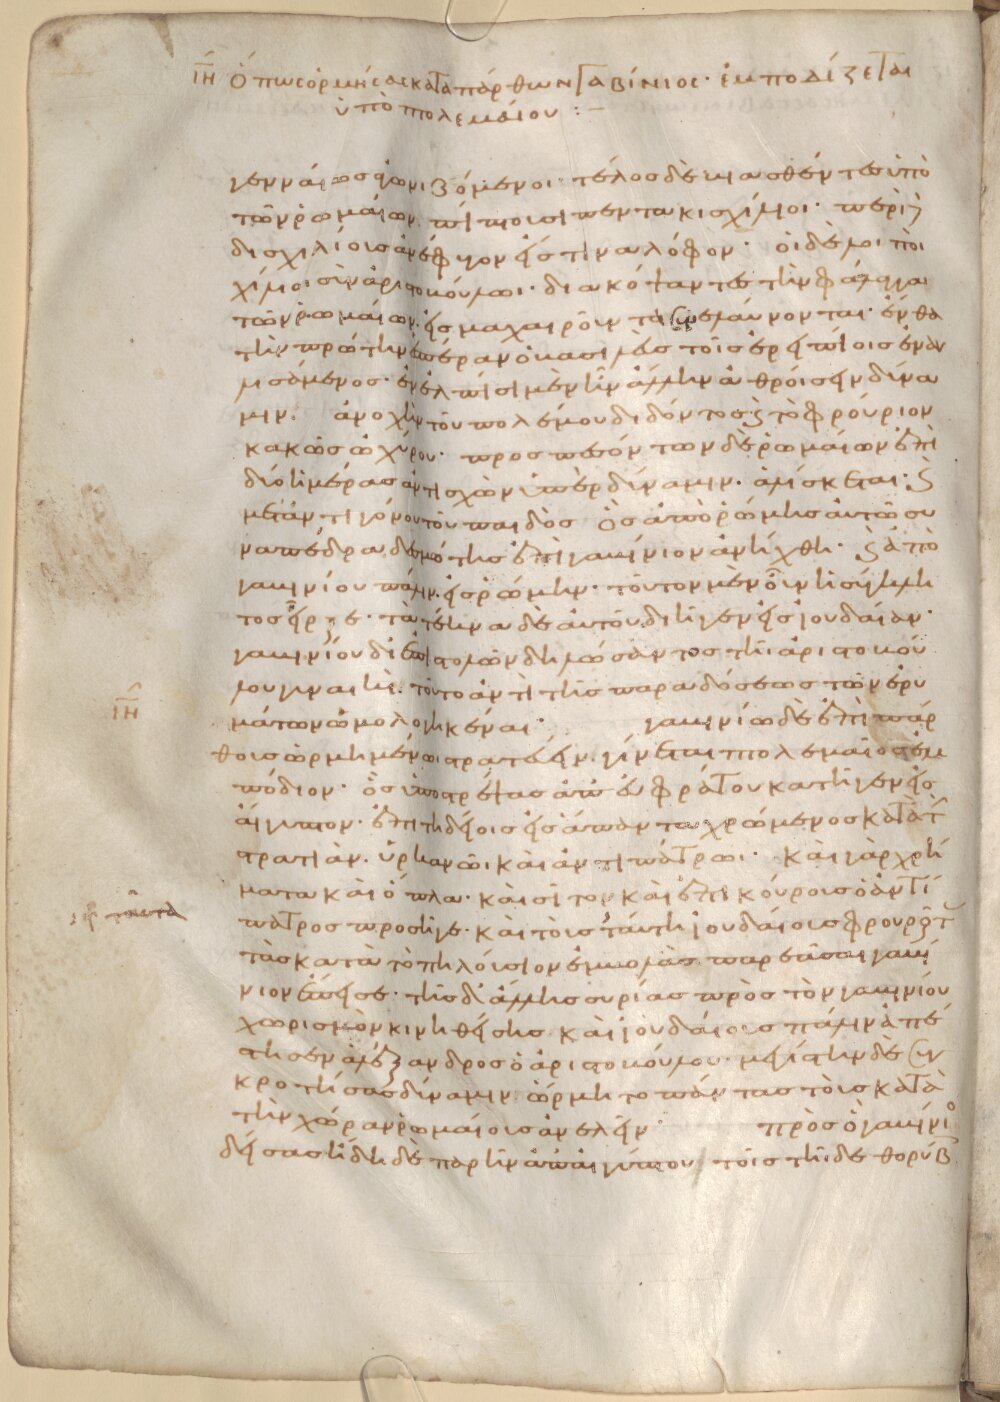 ΙΗ Ὅπως ὁρμήσας κατὰ πάρθων Γαβίνιος· ἐμποδίζεται
ὑπὸ πολεμαίου :–
γενναίως ἀγωνιζόμενοι· τέλος δὲ βιασθέντες ὑπὸ
τῶν ῥωμαίων πίπτουσι πεντακισχίλιοι· περὶ
δισχιλίοις ἀνέφυγον εἴς τινα λόφον· οἱ δὲ λοιποὶ
χίλιοι σὺν ἀριστοβούλωι· διακόψαντες τὴν φάλαγγα
τῶν ῥωμαίων· εἰς μαχαιροῦντα συνελαύνονται· ἔνθα
τὴν πρώτην ἑσπέραν ὁ βασιλεὺς τοῖς ἐρειπίοις ἐναυ
λισάμενος· ἐν ἐλπίσι μὲν ἦν ἄλλην ἀθροίσειν δύνα
μιν· ἀνοχὴν τοῦ πολέμου διδόντος καὶ τὸ φρούριον
κακῶς ὠχύρου· προσπεσόντων δὲ ῥωμαίων ἐπὶ
δύο ἡμέρας ἀντισχὼν ὑπὲρ δύναμιν· ἁλίσκεται· καὶ
μετ' ἀντιγόνου τοῦ παιδὸς ὃς ἀπὸ ῥώμης αὐτῶ συ
ναπέδρα δεσμώτης ἐπὶ γαβίνιον ἀνήχθη· καὶ ἀπὸ
γαβινίου πάλιν εἰς ῥώμην· τοῦτον μὲν οὖν ἡ σύγκλη
τος εἶρξε· τὰ τέκνα δὲ αὐτοῦ διῆκεν εἰς ἰουδαίαν·
γαβινίου δι' ἐπιστολῶν δηλώσαντος τῆι ἀριστοβού
λου γυναικὶ· τοῦτο ἀντὶ τῆς παραδόσεως τῶν ἐρυ
ΙΗ
μάτων ὡμολογηκέναι· γαβινίω δὲ ἐπὶ πάρ
θοις ὡρμημένωι στρατεύειν· γίνεται πτολεμαῖος ἐμ
πόδιον· ὃς ὑποστρέψας ἀπ' εὐφράτου κατῆγεν εἰς
αἴγυπτον· ἐπιτηδείοις εἰς ἅπαντα χρώμενος κατὰ τὴν
στρατιὰν· ὑρκανῶι καὶ ἀντιπάτρωι· καὶ γὰρ χρή
ματα καὶ ὅπλα· καὶ σῖτον καὶ ἐπικούρους ὁ ἀντί
πατρος προσῆγε· καὶ τοὺς ταύτη ἰουδαίους φρουροῦντας
τὰς κατὰ τὸ πηλούσιον ἐμβολὰς παρεῖναι γαβί
νιον ἔπεισε· τῆς δ' ἄλλης συρίας πρὸς τὸν γαβινίου
χωρισμὸν κινηθείσης καὶ ἰουδαίους πάλιν ἀπέ
στησεν ἀλέξανδρος ὁ ἀριστοβούλου· μεγίστην δὲ συγ
κροτήσας δύναμιν ὥρμητο πάντας τοὺς κατὰ
τὴν χώραν ῥωμαίους ἀνελεῖν· πρὸς ὃ γαβίνιος
δείσας ἤδη δὲ παρῆν ἀπ' αἰγύπτου τοῖς τῆιδε θορύβ